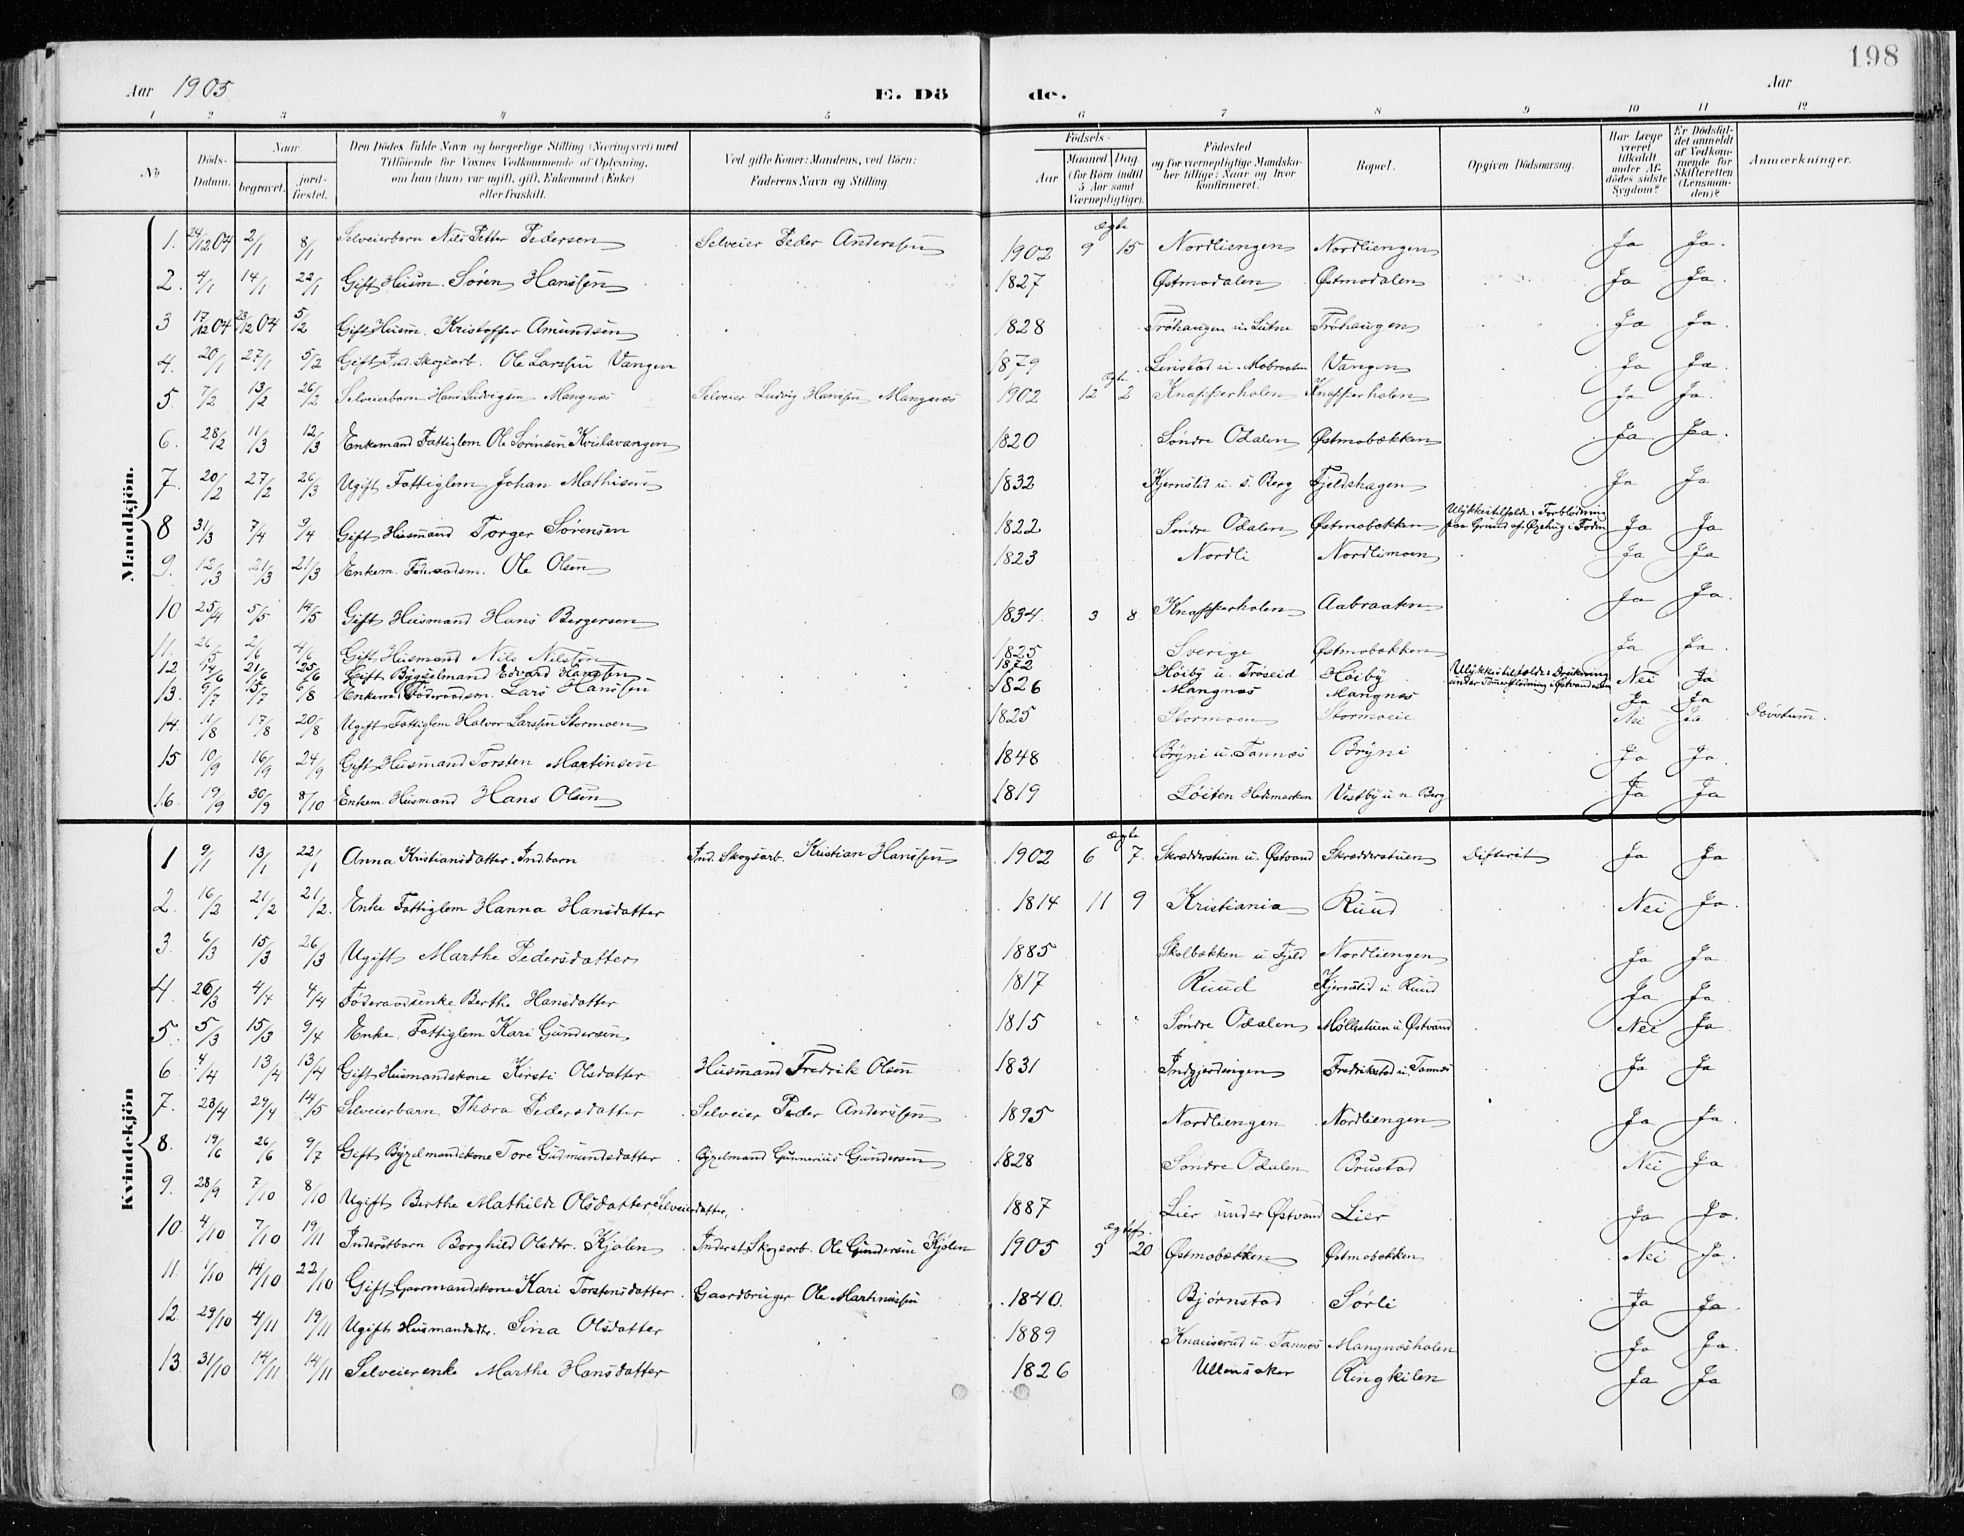 198
Aar 1905 E. Dö de. Aar
1 2 3 4 5 6 7 8 9 10 11 12
No Döds-Datum. Naar begravet. jordfæstet. Den Dödes fulde Navn og borgerlige Stilling (Næringsvei) med Tilföiende for Voxnes Vedkommende af Oplysning, om han (hun) var ugift, gift, Enkemand (Enke) eller fraskilt. Ved gifte Koner: Mandens, ved Börn: Faderens Navn og Stilling. Födsels- Aar Maaned Dag (for Börn indtil 5 Aar samt Værnepligtige). Födested og for værnepligtige Mandskaber tillige: Naar og hvor konfirmeret. Bopæl. Opgiven Dödsaarsag. Har Læge været tilkaldt under Afdödes sidste Sygdom? Er Dödsfaldet anmeldt af Vedkommende for Skifteretten (Lensmanden)? Anmærkninger.
Mandkjön.
1. 24/12 04 2/1 8/1 Selveierbarn Nils Petter Pedersen Selveier Peder Anderssen 1902 9 ægte 15 Nordliengen Nordliengen Ja Ja.
2. 4/1 14/1 22/1 Gift Husm. Sören Hanssen 1827 Østmodalen Østmodalen Ja Ja.
3 17/12 04 23/12 04 5/12 Gift Husm. Kristoffer Amundsen 1828 Tröhaugen u. Lutne Tröhaugen Ja Ja.
4. 20/1 27/1 5/2 Gift Ind. Skogsarb. Ole Larssen Vangen 1879 Linstad u. Mobraaten Vangen Ja Ja
5. 7/2 13/2 26/2 Selveierbarn Hans Ludvigsen Mangnæs Selveier Ludvig Hanssen Mangnæs 1902 12 ægte 2 Knapperholen Knapperholen Ja Ja.
6. 28/2 11/3 12/3 Enkemand Fattiglem Ole Sörensen Kvislavangen 1820 Söndre Odalen Østmobækken Ja Ja.
7. 20/2 27/2 26/3 Ugift Fattiglem Johan Mathisen 1832 Kjernslid u. s. Berg Fjeldshagen Ja Ja
8 31/3 7/4 9/4 Gift Husmand Torger Sörensen 1822 Söndre Odalen Østmobækken Ulykkestilfælde: Forblödning paa Grund af Øxehug i Foden Ja Ja
9. 12/3 21/3 21/3 Enkem. Föderaadsm. Ole Olsen 1823 Nordli Nordlimoen Ja Ja
10 25/4 5/5 14/5 Gift Husmand Hans Bergersen 1834. 3 8. Knapperholen Aabraaten Ja Ja.
11. 26/5 2/6 4/6 Gift Husmand Nils Nilsson 1825 Sverige Østmobækken Ja Ja.
12 14/6 21/6 25/6 Gift Bygselmand Edvard Hanssen 1872 Höiby u. Tröseid Höiby Ulykkestilfælde: Drukning under Tömmerflödning i Østvandsaaen Nei Ja
13. 9/7 15/7 6/8 Enkem. Föderaadsm. Lars Hanssen 1826 Mangnæs Mangnæs Ja Ja
14. 11/8 17/8 20/8 Ugift Fattiglem Halvor Larssen Stormoen 1825 Stormoen Stormoeie Nei Ja Dövstum.
15 10/9 16/9 24/9 Gift Husmand Torsten Martinsen 1848 Bryni u. Tannæs Bryni Ja Ja.
16. 19/9 30/9 8/10 Enkem. Husmand Hans Olsen 1819 Löiten Hedemarken Vestby u. n. Berg Ja Ja
Kvindekjön
1 9/1 13/1 22/1 Anna Kristiansdatter. Ind.barn Ind. Skogsarb. Kristian Hanssen 1902 6 ægte 7. Skrædderstuen u. Østvand Skrædderstuen Difterit Ja Ja
2. 16/2 21/2 21/2. Enke Fattiglem Hanna Hansdatter 1814 11 9 Kristiania Ruud Nei Ja.
3. 6/3 15/3 26/3 Ugift Marthe Pedersdatter 1885 Skolbækken u Fjeld Nordliengen Ja Ja
4. 26/3 4/4 4/4 Föderaadsenke Berthe Hansdatter 1817 Ruud Kjernslid u Ruud Ja Ja.
5. 5/3 15/3 9/4 Enke. Fattiglem Kari Gundersen 1815 Söndre Odalen Möllestuen u. Østvand Nei Ja.
6. 4/4 13/4 13/4 Gift Husmandskone Kirsti Olsdatter Husmand Fredrik Olsen 1831 Indgjerdingen Fredrikstad u. Tannæs Ja Ja
7. 23/4 29/4 14/5 Selveierbarn Thora Pedersdatter Selveier Peder Anderssen 1895 Nordliengen Nordliengen Ja Ja.
8. 19/6 26/6 9/7 Gift Bygselmandskone Tore Gudmundsdatter Bygselmand Gunnerius Gundersen 1828 Söndre Odalen Brustad Nei Ja
9. 28/9 7/10 8/10 Ugift Berthe Mathilde Olsdatter, Selveierdatter, 1887 Lier under Østvand Lier Ja Ja.
10 4/10 7/10 19/11 Inderstbarn Borghild Olsdtr. Kjölen Inderst Skogsarb. Ole Gundersen Kjölen 1905 9 ægtef. 20 Østmobækken Østmobækken Nei Ja.
11. 1/10 14/10 22/10 Gift Gaarmandskone Kari Torstensdatter Gaardbruger Ole Martinussen 1840. Björnstad Sörli Ja Ja.
12. 29/10 4/11 19/11 Ugift Husmandsdtr. Sina Olsdatter 1889 Knauserud u. Tannæs Mangnæsholen Ja Ja.
13 31/10 14/11 14/11 Selveierenke Marthe Hansdatter 1826 Ullensaker Ringkilen Ja Ja